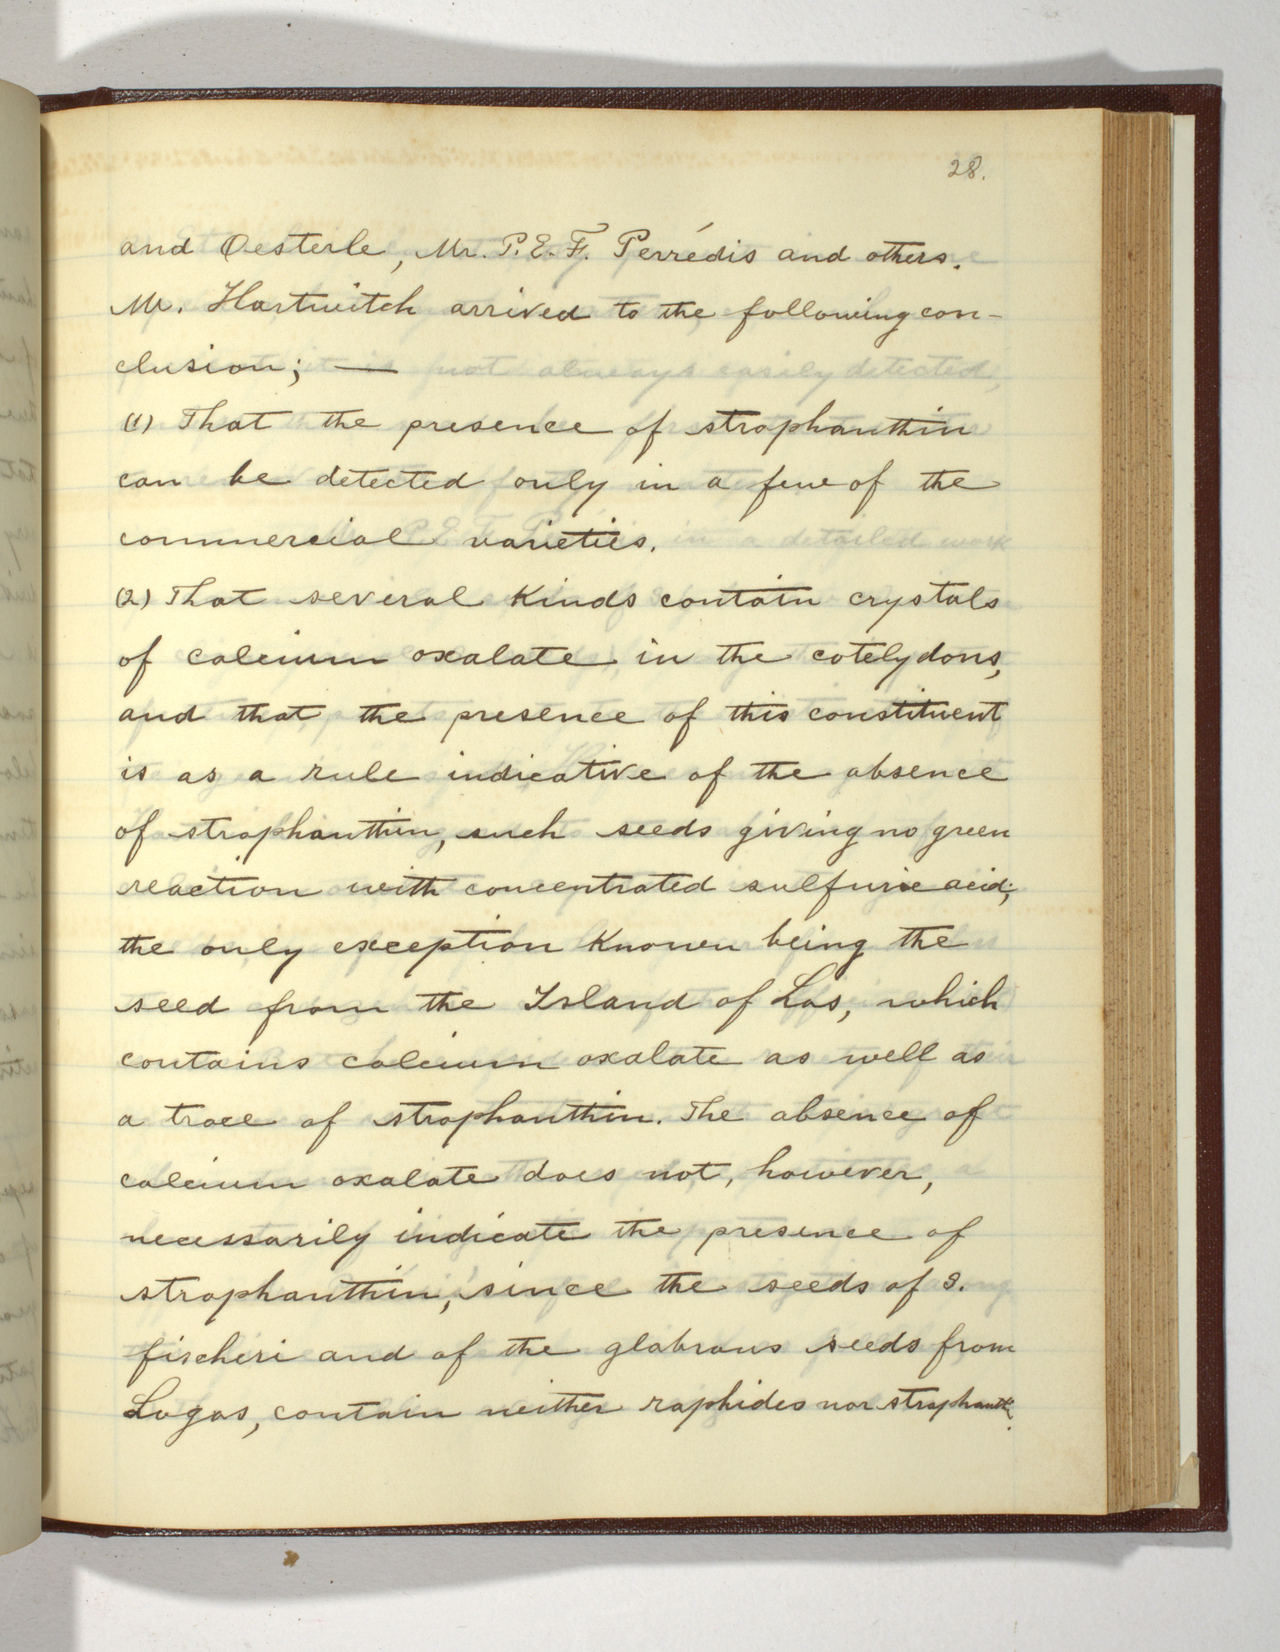 28.
and Oesterle, Mr. P. E. F. Perrédis and others.
Mr. Hartwitch arrived to the following con-
clusion; —
(1) That the presence of strophanthin
can be detected only in a few of the
commercial varieties.
(2) That several kinds contain crystals
of calcium oxalate in the cotelydons,
and that the presence of this constituent
is as a rule indicative of the absence
of strophanthin, such seeds giving no green
reaction with concentrated sulfuric acid;
the only exception known being the
seed from the Island of Los, which
contains calcium oxalate as well as
a trace of strophanthin. The absence of
calcium oxalate does not, however,
necessarily indicate the presence of
strophanthin, since the seeds of S.
fischeri and of the glabrous seeds from
Lagos, contain neither raphides nor